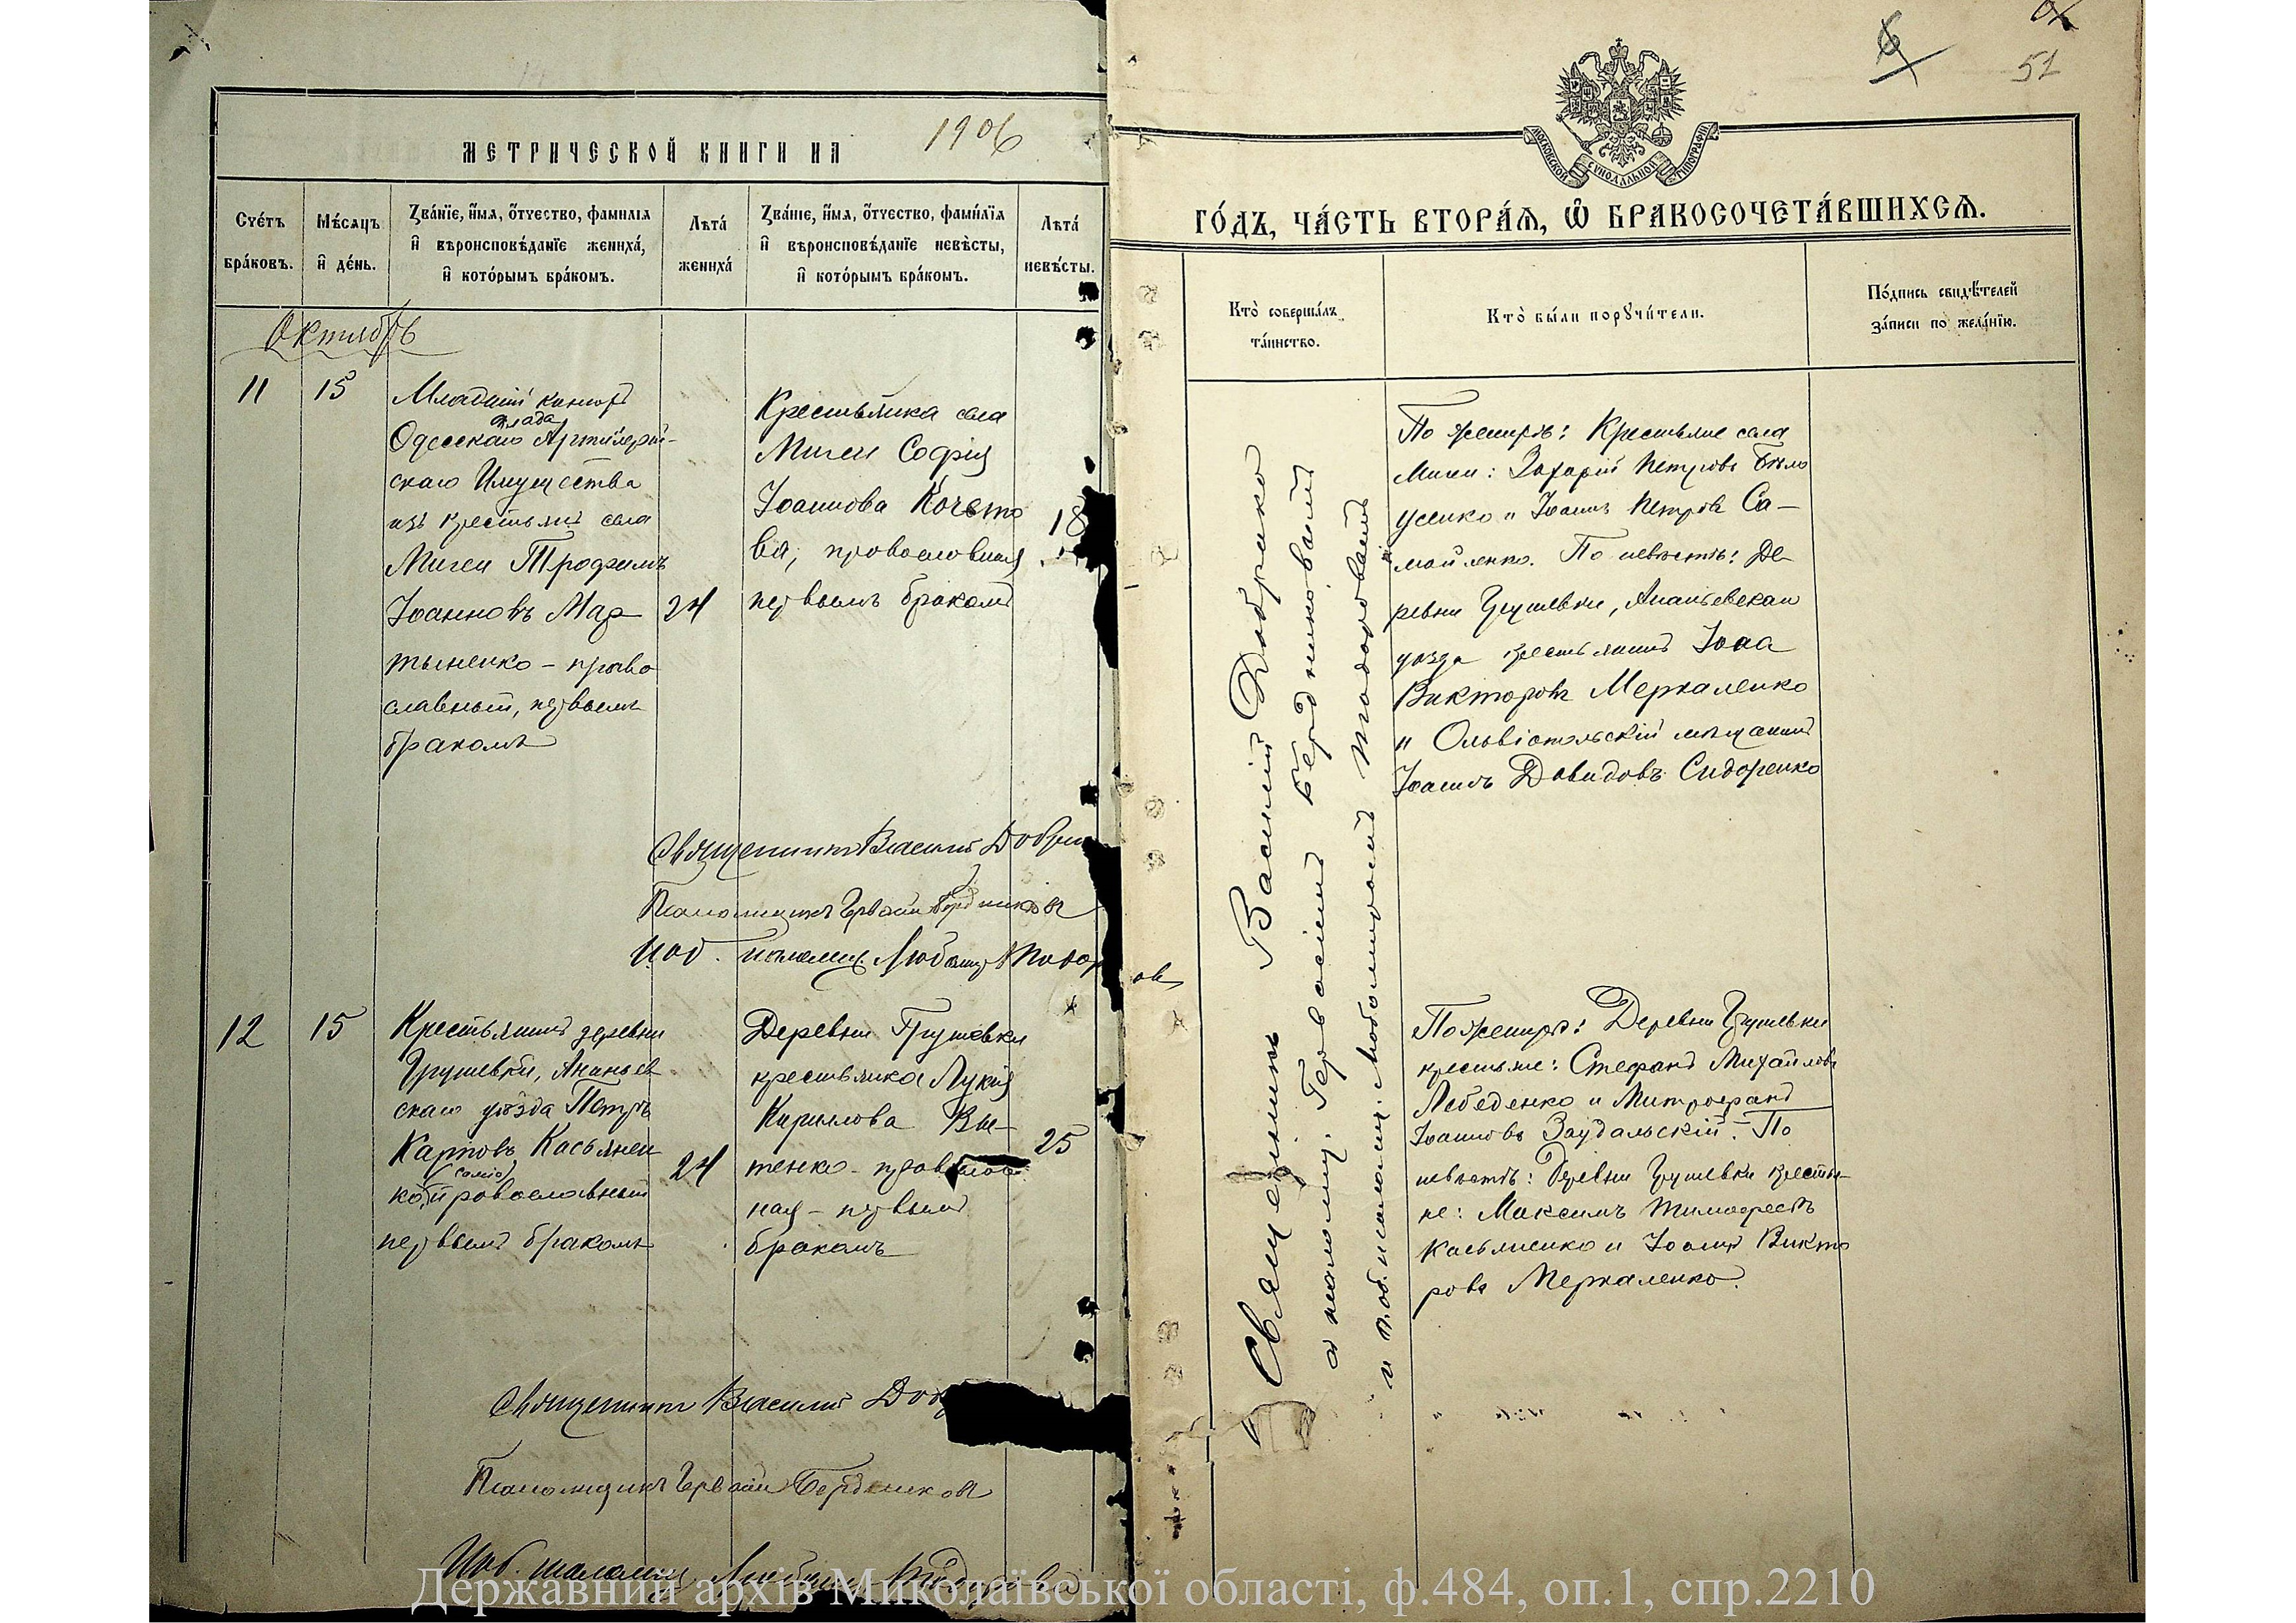 МЕТРИЧЕСКОЙ КНИГИ НА 1906
Счетъ браковъ.
Мѣсяцъ и день.
Званіе, имя, отчество, фамилія и вѣроисповѣданіе жениха, и которымъ бракомъ.
Лѣта жениха
Званіе, имя, отчество, фамилія и вѣроисповѣданіе невѣсты, и которымъ бракомъ.
Лѣта невѣсты.
Октябрь
11
15
Младшій
склада
Одесскаго Артиллерій-
скаго Имущества
изъ крестьянъ села
Мигеи Трофимъ
Іоанновъ Мар
тыненко - право
славный, первымъ
бракомъ
24
Крестьянка села
Мигеи Софія
Іоаннова Кочето
ва, православная
первымъ бракомъ
18
Священникъ Василій
Псаломщикъ Гервасій Бердниковъ
И. об. псаломщ. Любомиръ
12
15
Крестьянинъ деревни
Грушевки, Ананьев
скаго уѣзда Петръ
Карповъ Касьянен
ко, православный
первымъ бракомъ
24
Деревни Грушевки
крестьянка Лукія
Кириллова Вы-
тенко - православ
ная - первымъ
бракомъ
25
Священникъ Василій
Псаломщикъ Гервасій Бердниковъ
И об. псаломщ.
6
51
МОСКОВСКОЙ СѴНОДАЛЬНОЙ ТИПОГРАФІИ
ГОДЪ, ЧАСТЬ ВТОРАЯ, Ѡ БРАКОСОЧЕТАВШИХСЯ.
Кто совершалъ таинство.
Кто были поручители.
Подпись свидѣтелей записи по желанію.
Священникъ Василій
псаломщ. Гервасій Бердниковымъ
и и. об. псаломщ. Любомиромъ
По женихѣ: Крестьяне села
Мигеи: Захарій Петровъ Бѣло
усенко и Іоаннъ Петровъ Са-
мойленко. По невѣстѣ: Де-
ревни Грушевки, Ананьевскаго
уѣзда крестьянинъ Іоа
Викторовъ Меркаленко
и Ольвіопольскій мѣщанинъ
Іоаннъ Давидовъ Сидоренко
По женихѣ: Деревни Грушевки
крестьяне: Стефанъ Михайловъ
Лебеденко и Митрофанъ
Іоанновъ Заудальскій. По
невѣстѣ: Деревни Грушевки крестья-
не: Максимъ Тимофеевъ
Касьяненко и Іоаннъ Викто
ровъ Меркаленко.
Державний архів Миколаївської області, ф.484, оп.1, спр.2210